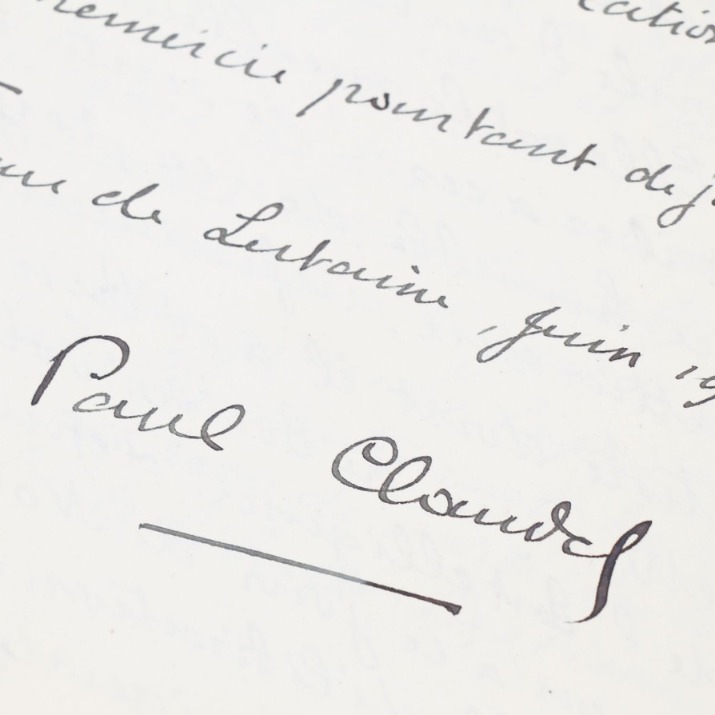 cation
remercie pourtant déj
de Lorraine, Juin 19
Paul Claudel